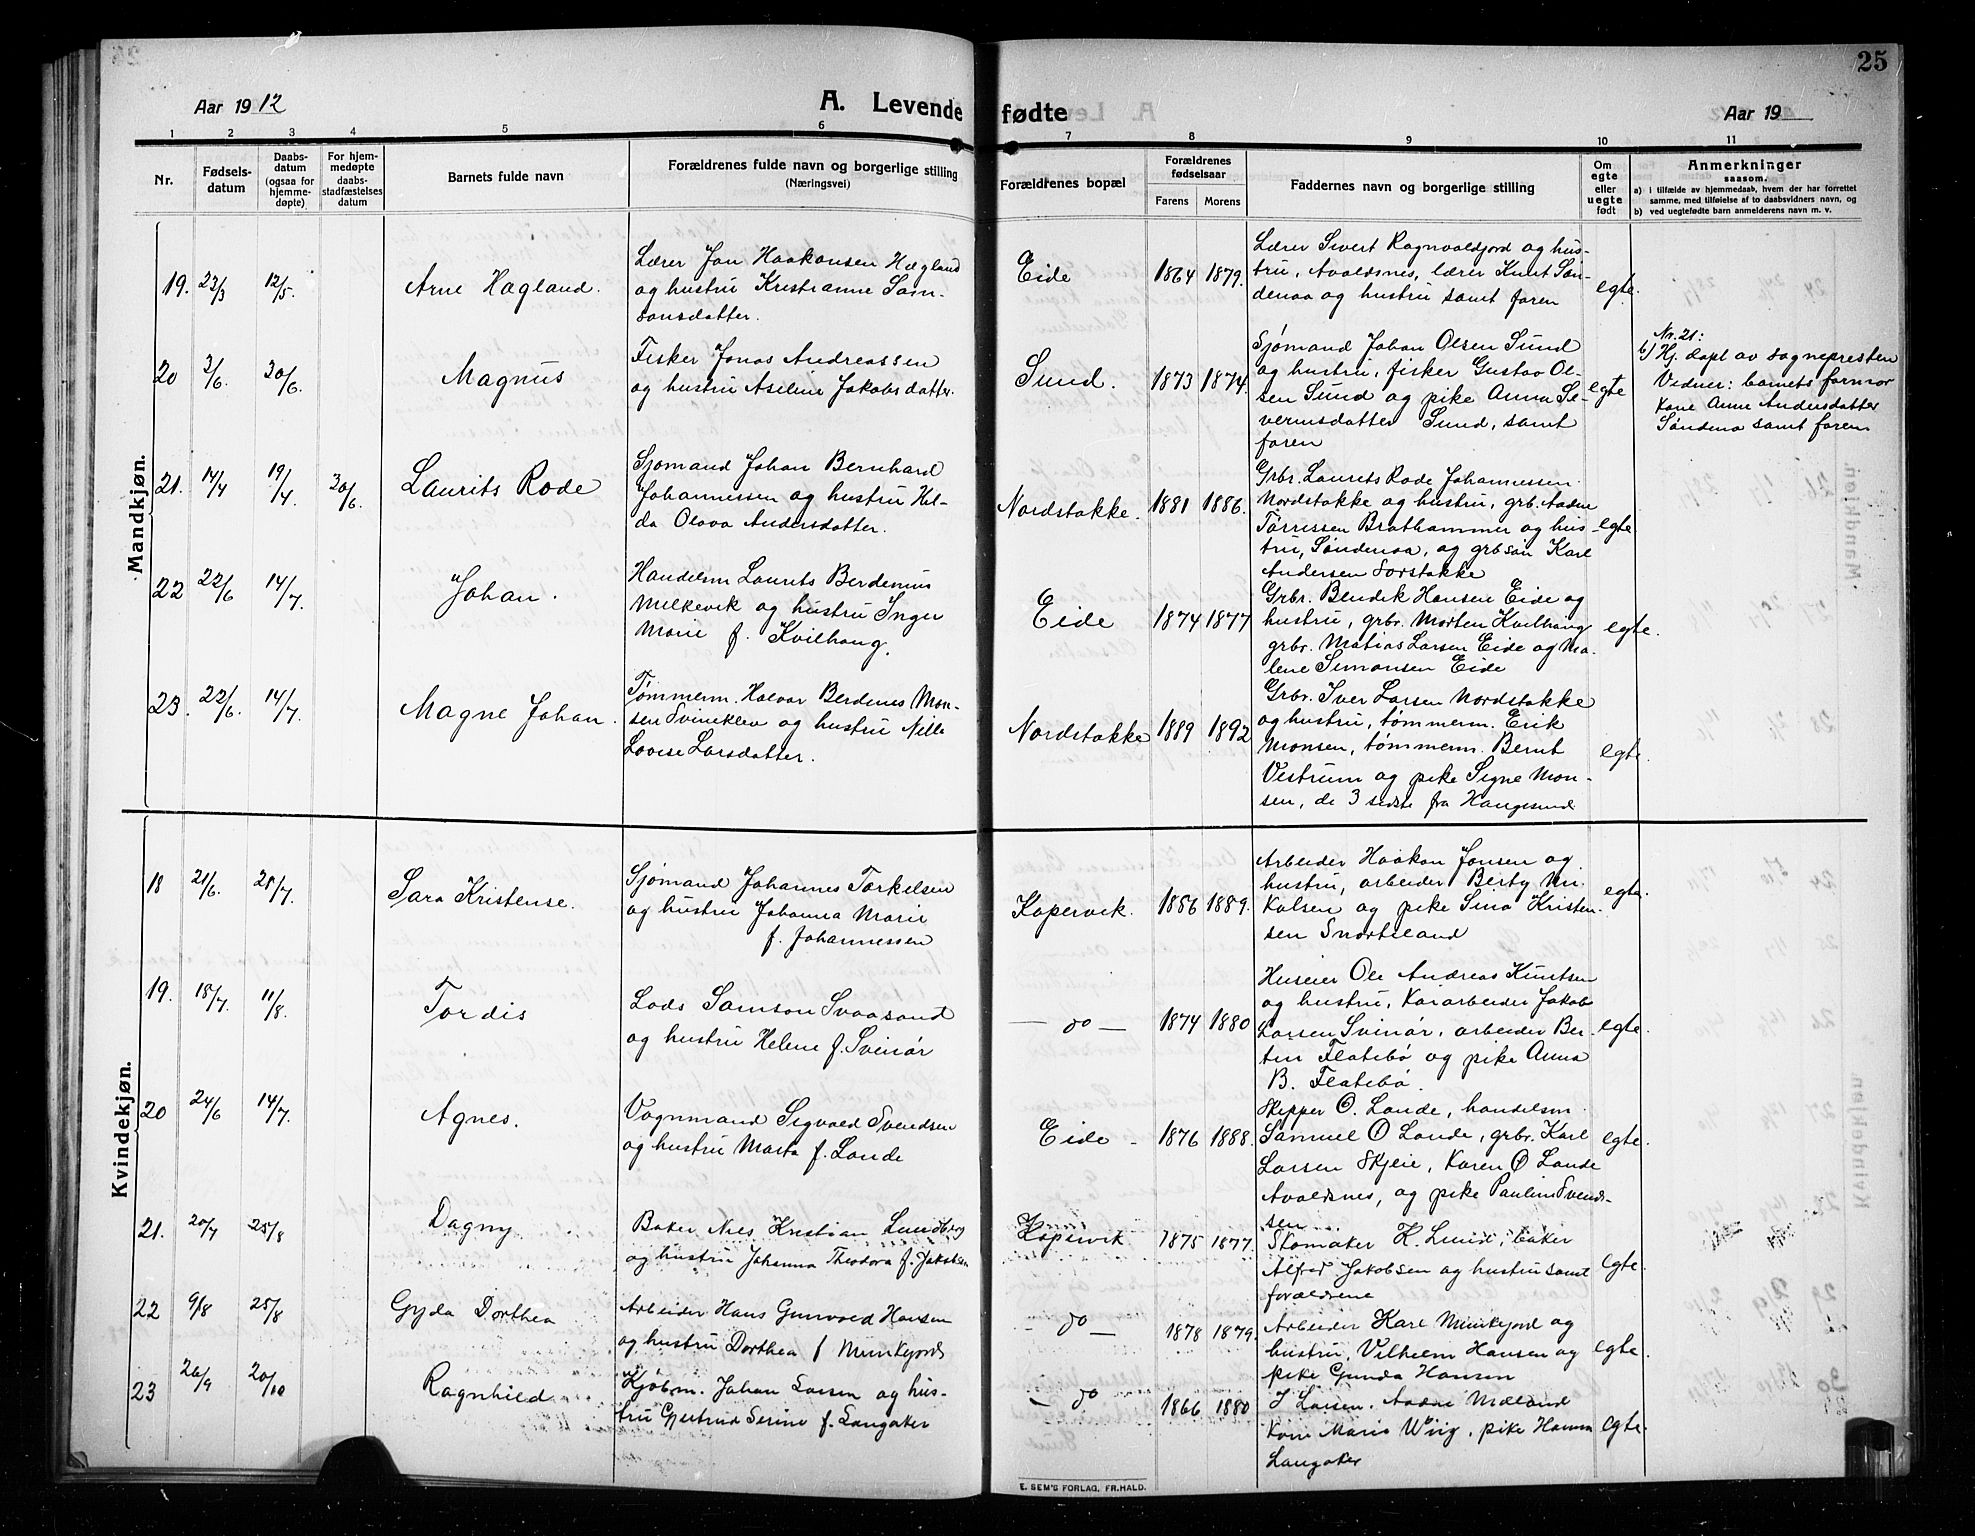 25
Aar 1912
A. Levende fødte
Aar 19
1 2 3 4 5 6 7 8 9 10 11
Nr.
Fødsels-
datum
Daabs-
datum
(ogsaa for
hjemme-
døpte)
For hjem-
medøpte
daabs-
stadfæstelses
datum
Barnets fulde navn
Forældrenes fulde navn og borgerlige stilling
(Næringsvei)
Forældrenes bopæl
Forældrenes
fødselsaar
Farens Morens
Faddernes navn og borgerlige stilling
Om
egte
eller
uegte
født
Anmerkninger
saasom.
a) i tilfælde av hjemmedaab, hvem der har forrettet
samme, med tilføielse af to daabsvidners navn, og
b) ved uegtefødte barn anmelderens navn m. v.
Mandkjøn.
19. 23/3 12/5. Arne Hagland.
Lærer Jon Haakonsen Hægland
og hustru Kristianne Sam-
sonsdatter.
Eide 1864 1879.
Lærer Sivert Ragnvaldjord og hus-
tru, Avaldsnes, lærer Knut Søn-
denaa og hustru samt faren
egte.
20 2/6. 30/6. Magnus
Fisker Jonas Andreassen
og hustru Aseline Jakobsdatter.
Sund. 1873 1874.
Sjømand Johan Olsen Sund
og hustru, fisker Gustav Ol-
sen Sund og pike Anna Se-
verinsdatter Sund, samt
faren
egte
Nr. 21:
b) Hj. døpt av sognepresten
Vidner: barnets farmor
kone Anne Andersdatter
Søndena samt faren
21. 14/4 19/4. 30/6. Laurits Rode
Sjømand Johan Bernhard
Johannessen og hustru Hul-
da Olava Andersdatter.
Nordstokke. 1881 1886.
Grbr. Laurits Rode Johannessen
Nordstokke og hustru, grb. Aadne
Tørressen Brathammer og hus-
tru, Søndenaa, og grbsøn Karl
Andersen Sørstokke
egte
22 22/6 14/7. Johan.
Handelsm Laurits Berdenius
Milkevik og hustru Inger
Marie f. Kvilhaug.
Eide 1874 1877
Grbr. Bendik Hansen Eide og
hustru, grbr. Morten Kvilhaug
grbr. Matias Larsen Eide og Ma-
lene Simonsen Eide
egte.
23. 22/6. 14/7. Magne Johan.
Tømmerm. Halvor Berdenes Mon-
sen Svineklev og hustru Nille
Lovise Larsdatter.
Nordstokke 1889 1892
Grbr. Iver Larsen Nordstokke
og hustru, tømmerm. Erik
Monsen, tømmerm. Bernt
Vestrum og pike Signe Mon-
sen, de 3 sidste fra Haugesund
egte.
Kvindekjøn.
18 21/6. 21/7. Sara Kristense.
Sjømand Johannes Torkelsen
og hustru Johanna Marie
f. Johannessen
Kopervik. 1886 1889.
Arbeider Haakon Jonsen og
hustru, arbeider Berty Ni-
kolsen og pike Sina Kristen-
sen Snorteland
egte.
19. 18/7. 11/8. Tordis
Lods Samson Svaasand
og hustru Helene f. Svinør
— do — 1874 1880
Huseier Ole Andreas Knutsen
og hustru, kararbeider Jakob
Larsen Svinør, arbeider Ber-
tin Flatebø og pike Anna
B. Flatebø.
egte.
20 24/6 14/7. Agnes.
Vognmand Sigvald Svendsen
og hustru Marta f. Lande
Eide - 1876 1888.
Skipper O. Lande, handelsm.
Samuel O Lande, grbr. Karl
Larsen Skjeie, Karen O Lande
Avaldsnes, og pike Pauline Svend-
sen
egte.
21. 20/7 25/8 Dagny
Baker Nils Kristian Lundberg
og hustru Johanna Theodora f. Jakobsen
Kopervik 1875 1877.
Skomaker K. Lund, baker
Alfred Jakobsen og hustru samt
forældrene
egte.
22 9/8 25/8 Gyda Dorthea
Arbeider Hans Gunvald Hansen
og hustru Dorthea f Munkejord
- do — 1878 1879.
Arbeider Karl Munkejord og
hustru, Vilhelm Hansen og
pike Gunda Hansen
egte.
23 26/9 20/10 Ragnhild
Kjøbm. Johan Larsen og hus-
tru Gjertrud Serine f. Langaker
- do 1866 1880
J Larsen. Aadne Mæland
kone Marie Wiig, pike Hanna
Langaker
egte.
E. SEM'S FORLAG, FR.HALD.